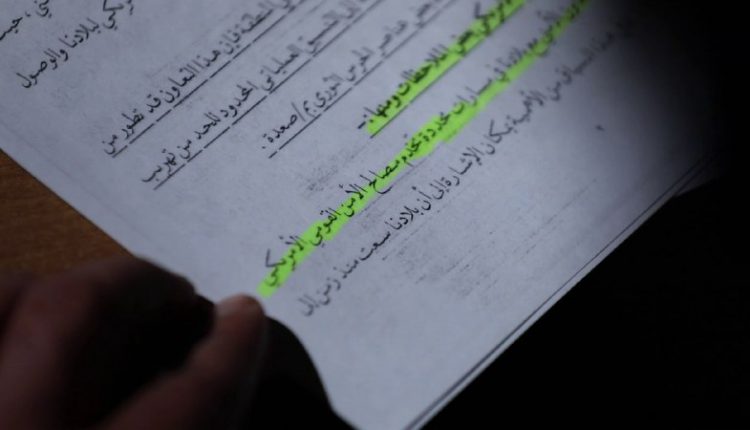 ني، حيث
ريكي لبلادنا والوصول
المنطقة فإن هذا التعاون قد تطور من
الى التنسيق العملياتي المحدود للحد من تهريب
بعض عناصر الحرس الثوري بم/صعدة.
بعض الملاحظات ومنها:
بلادنا في مسارات محددة تخدم مصالح الأمن القومي الأمريكي
هذا السياق من الأهمية بمكان الإشارة إلى أن بلادنا سعت منذ زمن إلى